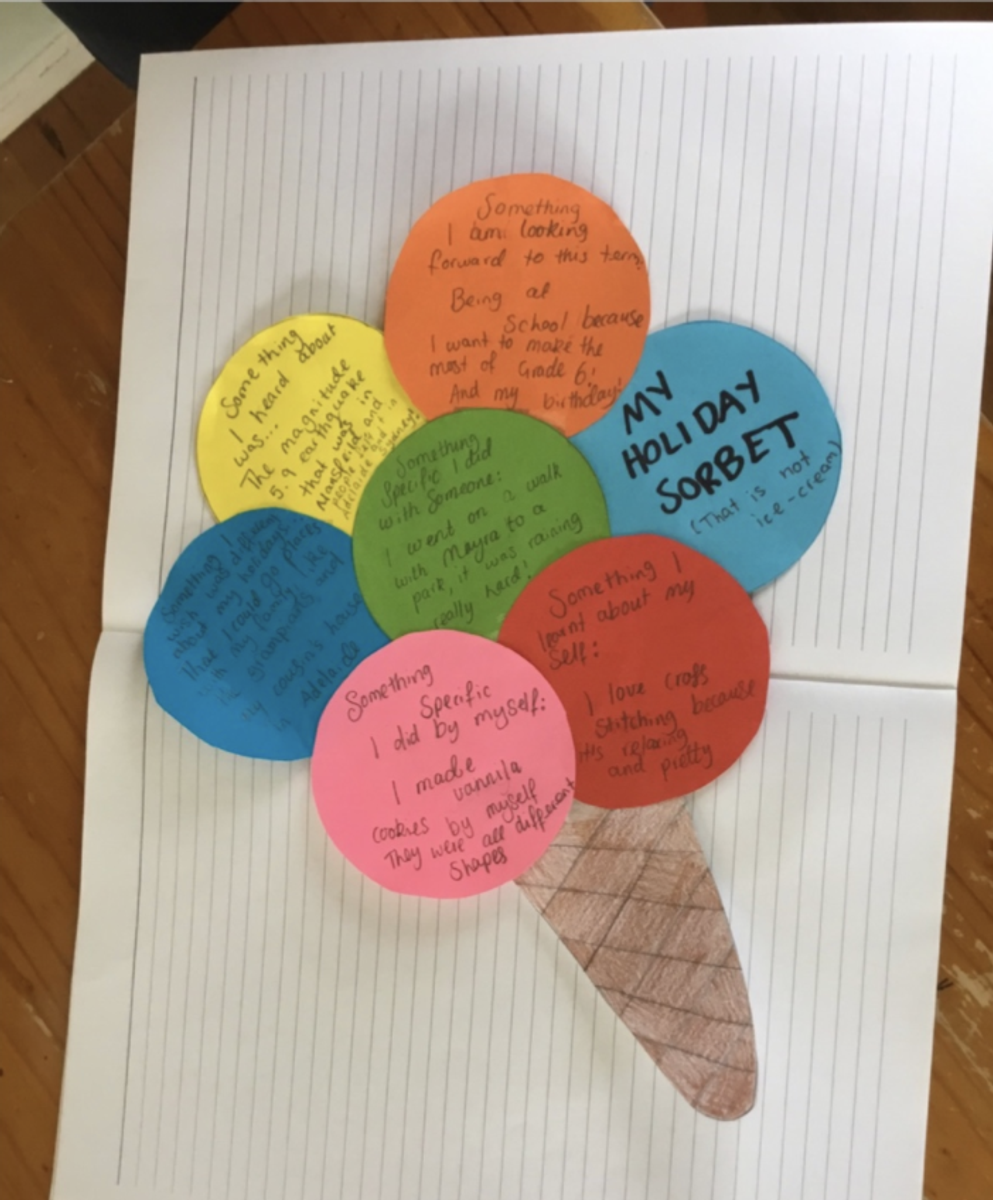 MY
HOLIDAY
SORBET
(That is not
ice-cream)
Something
I am looking
forward to this term:
Being at
School because
I want to make the
most of Grade 6!
And my birthday!
Something
I heard about
was...
The magnitude
5.9 earthquake
that was in
Mansfield and
people felt it in
Adelaide and
Sydney!
Something
Specific I did
with Someone:
I went on a walk
with Mayra to a
park, it was raining
really hard!
Something I
wish was different
about my holidays...
that I could go places
with my family like
my grandparents and
cousins house
in Adelaide
Something I
learnt about my
self:
I love cross
Stitching because
it's relaxing
and pretty
Something
Specific
I did by myself:
I made
vannila
cookies by myself
They were all different
Shapes